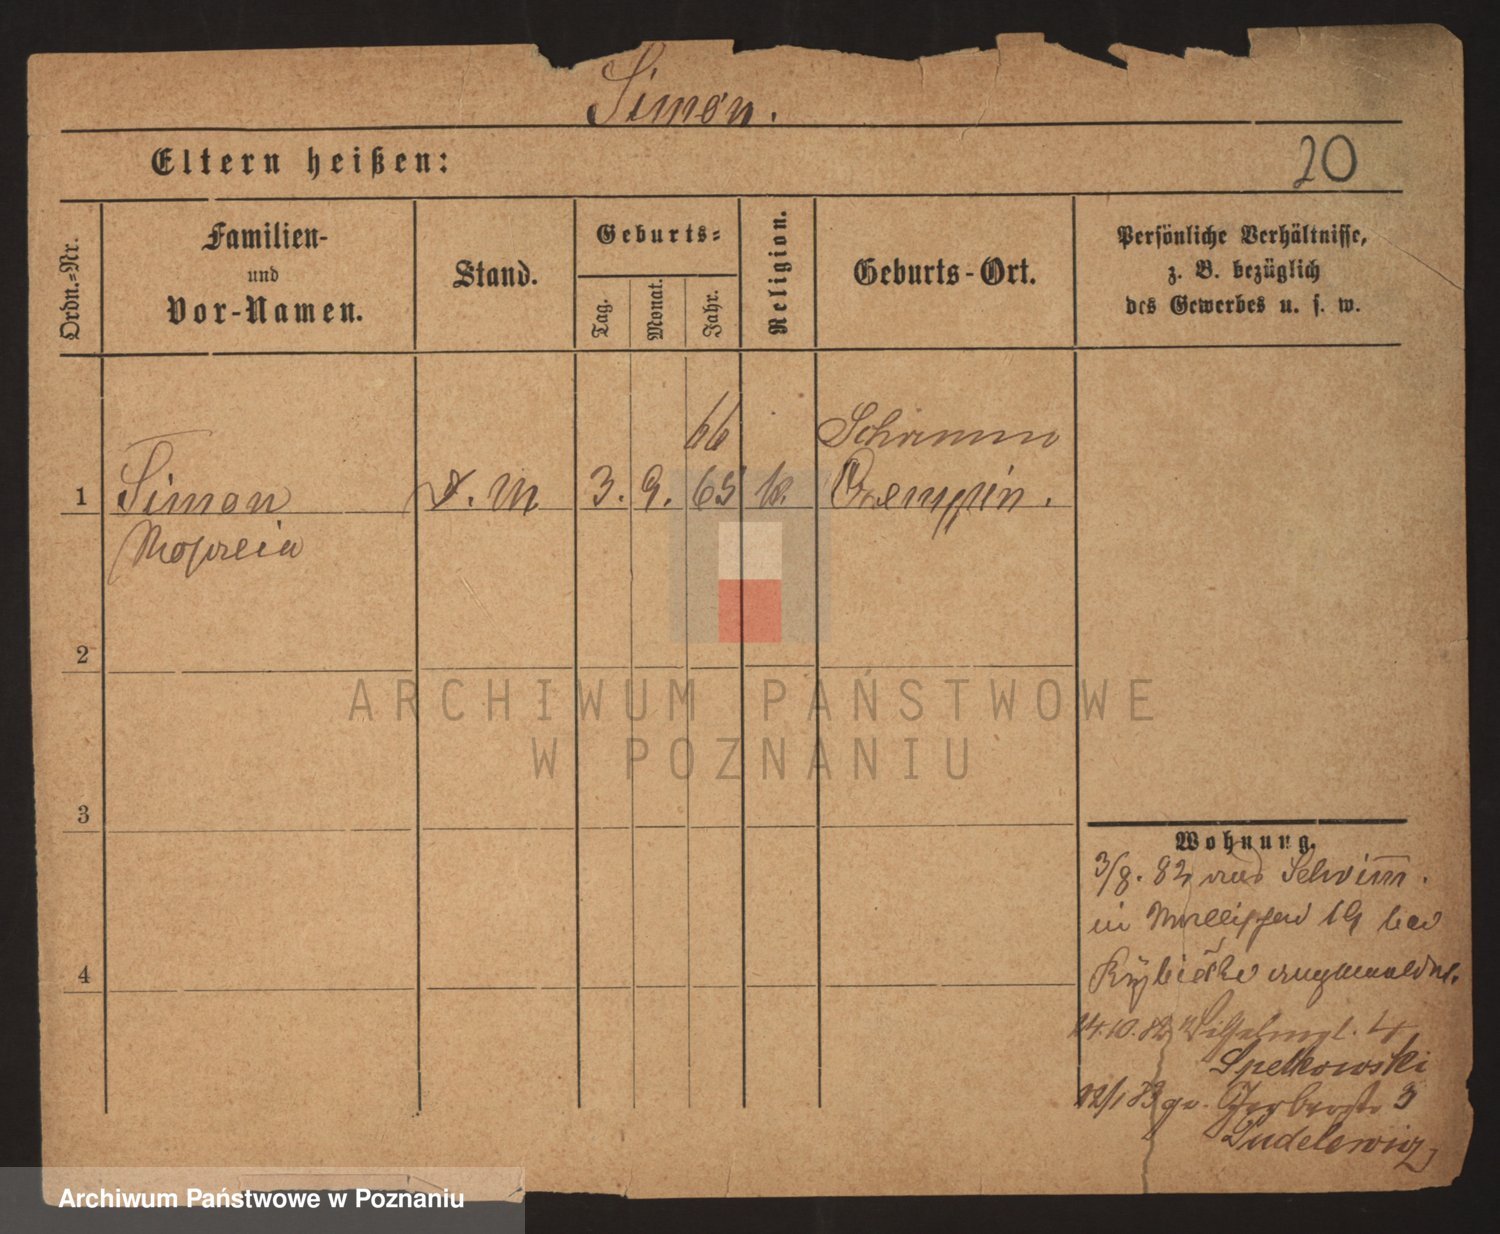 Simon.
Eltern heißen:
20
Ordn.-Nr.
Familien-
und
Vor-Namen.
Stand.
Geburts-
Tag.
Monat.
Jahr.
Religion.
Geburts-Ort.
Persönliche Verhältnisse,
z. B. bezüglich
des Gewerbes u. s. w.
66
1
Simon
D. M
3.
9.
65
k.
Czempin.
2
3
4
Wohnung.
3/8. 82 aus
in 19 bei
14.10.82 4
Spetkowski
12/1 83 Gerberstr 3
Ludelewicz
ARCHIWUM PAŃSTWOWE
W POZNANIU
Archiwum Państwowe w Poznaniu